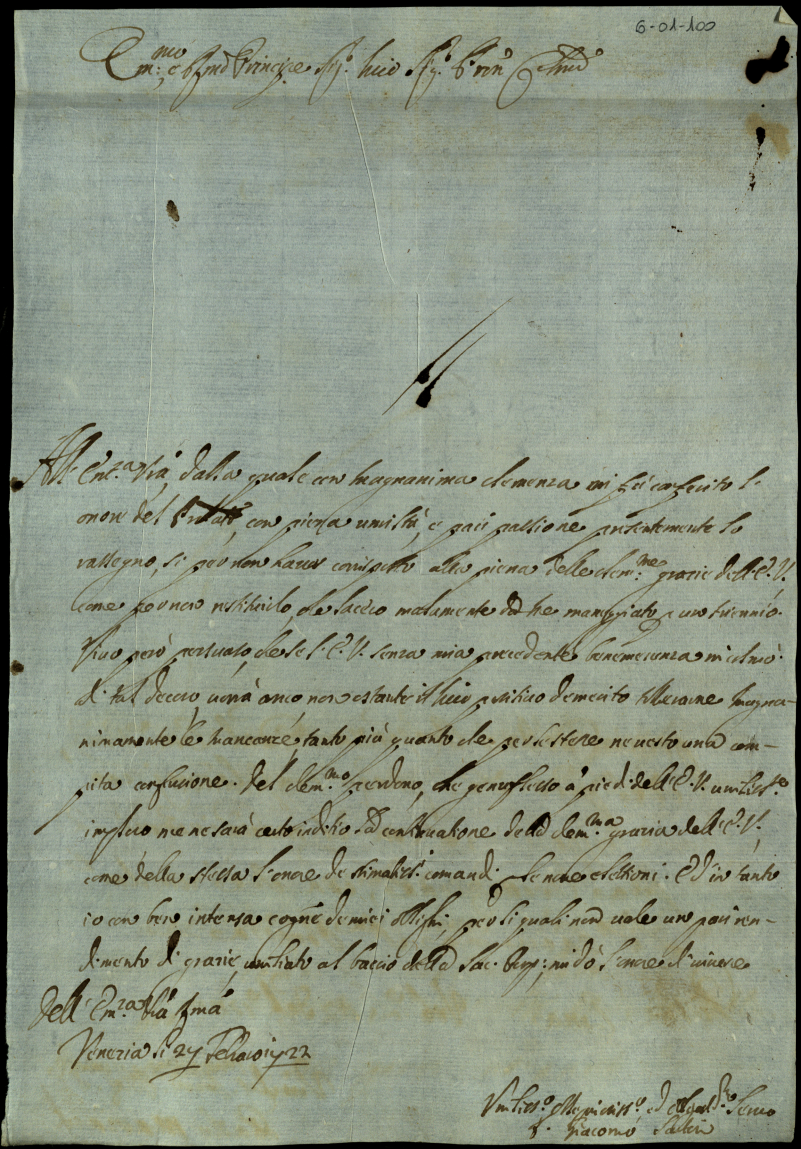 6-01-100
Em:mo e Principe Sig.r Sig.r P'ron
All' Em.za V'ra dalla quale con magnanima clemenza mi fù conferito l'
onore del con piena umiltà, e pari passione presentemente lo
rassegno, sì per non haver corrisposto alla piena delle clem:me grazie dell'E.V.
come per non restituirlo, che lacero malamente da me maneggiato un triennio.
Vivo però persuaso, che se l'E.V. senza mia precedente benemerenza mi colmò
di tal decoro, vorrà anco non ostante il mio positivo demerito tollerarne magna-
nimamente le mancanze, tanto più quanto che per esse ne vesto una com-
pita confusione. Del clem:mo perdono, che genuflesso a' piedi dell'E.V.
imploro me ne sarà certo inditio la continuatione della clem:ma grazia dell'E.V.,
come della stessa l'onore de' comandi. Ed in tanto
io con ben intensa de miei per li quali non vale un pari ren-
dimento di grazie, umiliato al baccio della Sac. mi dò l'onore di vivere
Dell' Em.za V'ra
Venezia li 27 1722
ed Servo
Giacomo